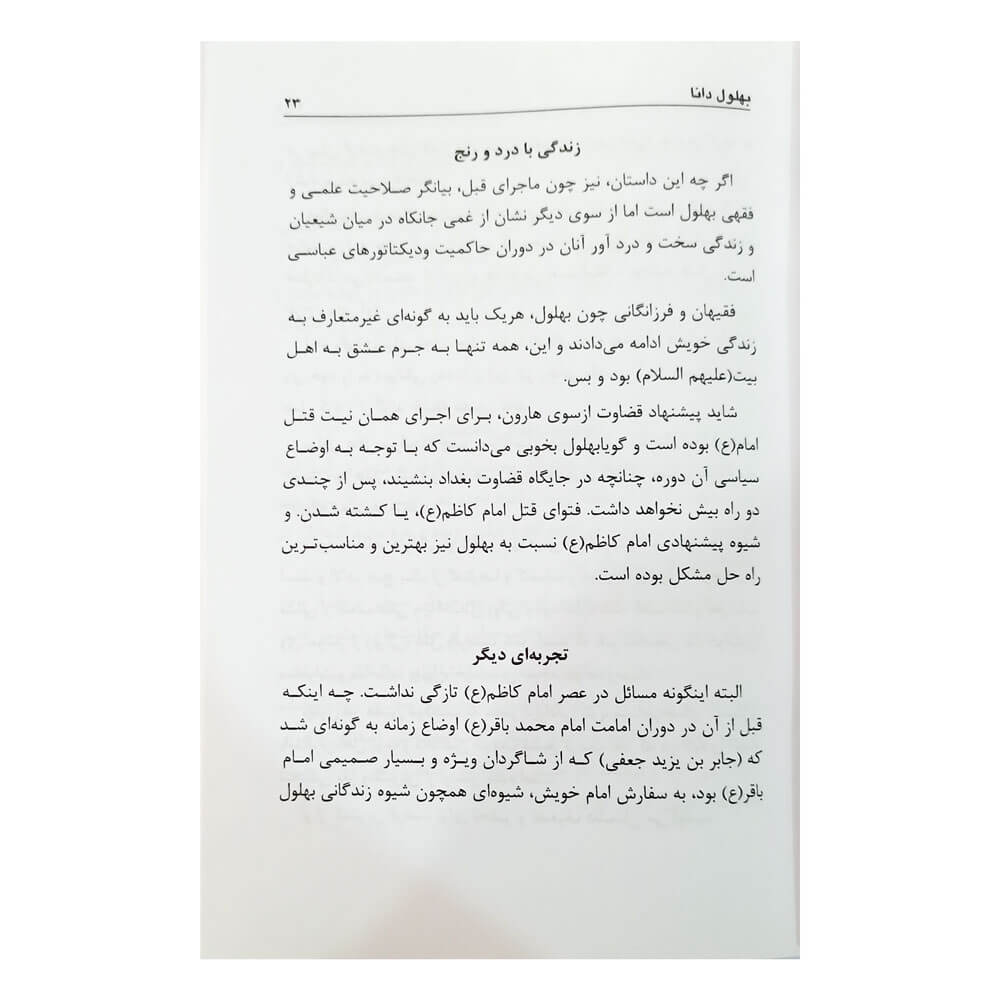 بهلول دانا ۲۳
زندگی با درد و رنج
اگر چه این داستان، نیز چون ماجرای قبل، بیانگر صلاحیت علمی و
فقهی بهلول است اما از سوی دیگر نشان از غمی جانکاه در میان شیعیان
و زندگی سخت و درد آور آنان در دوران حاکمیت ودیکتاتورهای عباسی
است.
فقیهان و فرزانگانی چون بهلول، هریک باید به گونه‌ای غیرمتعارف به
زندگی خویش ادامه می‌دادند و این، همه تنها به جرم عشق به اهل
بیت(علیهم السلام) بود و بس.
شاید پیشنهاد قضاوت ازسوی هارون، برای اجرای همان نیت قتل
امام(ع) بوده است و گویابهلول بخوبی می‌دانست که با توجه به اوضاع
سیاسی آن دوره، چنانچه در جایگاه قضاوت بغداد بنشیند، پس از چندی
دو راه بیش نخواهد داشت. فتوای قتل امام کاظم(ع)، یا کشته شدن. و
شیوه پیشنهادی امام کاظم(ع) نسبت به بهلول نیز بهترین و مناسب‌ترین
راه حل مشکل بوده است.
تجربه‌ای دیگر
البته اینگونه مسائل در عصر امام کاظم(ع) تازگی نداشت. چه اینکه
قبل از آن در دوران امامت امام محمد باقر(ع) اوضاع زمانه به گونه‌ای شد
که (جابر بن یزید جعفی) که از شاگردان ویژه و بسیار صمیمی امام
باقر(ع) بود، به سفارش امام خویش، شیوه‌ای همچون شیوه زندگانی بهلول